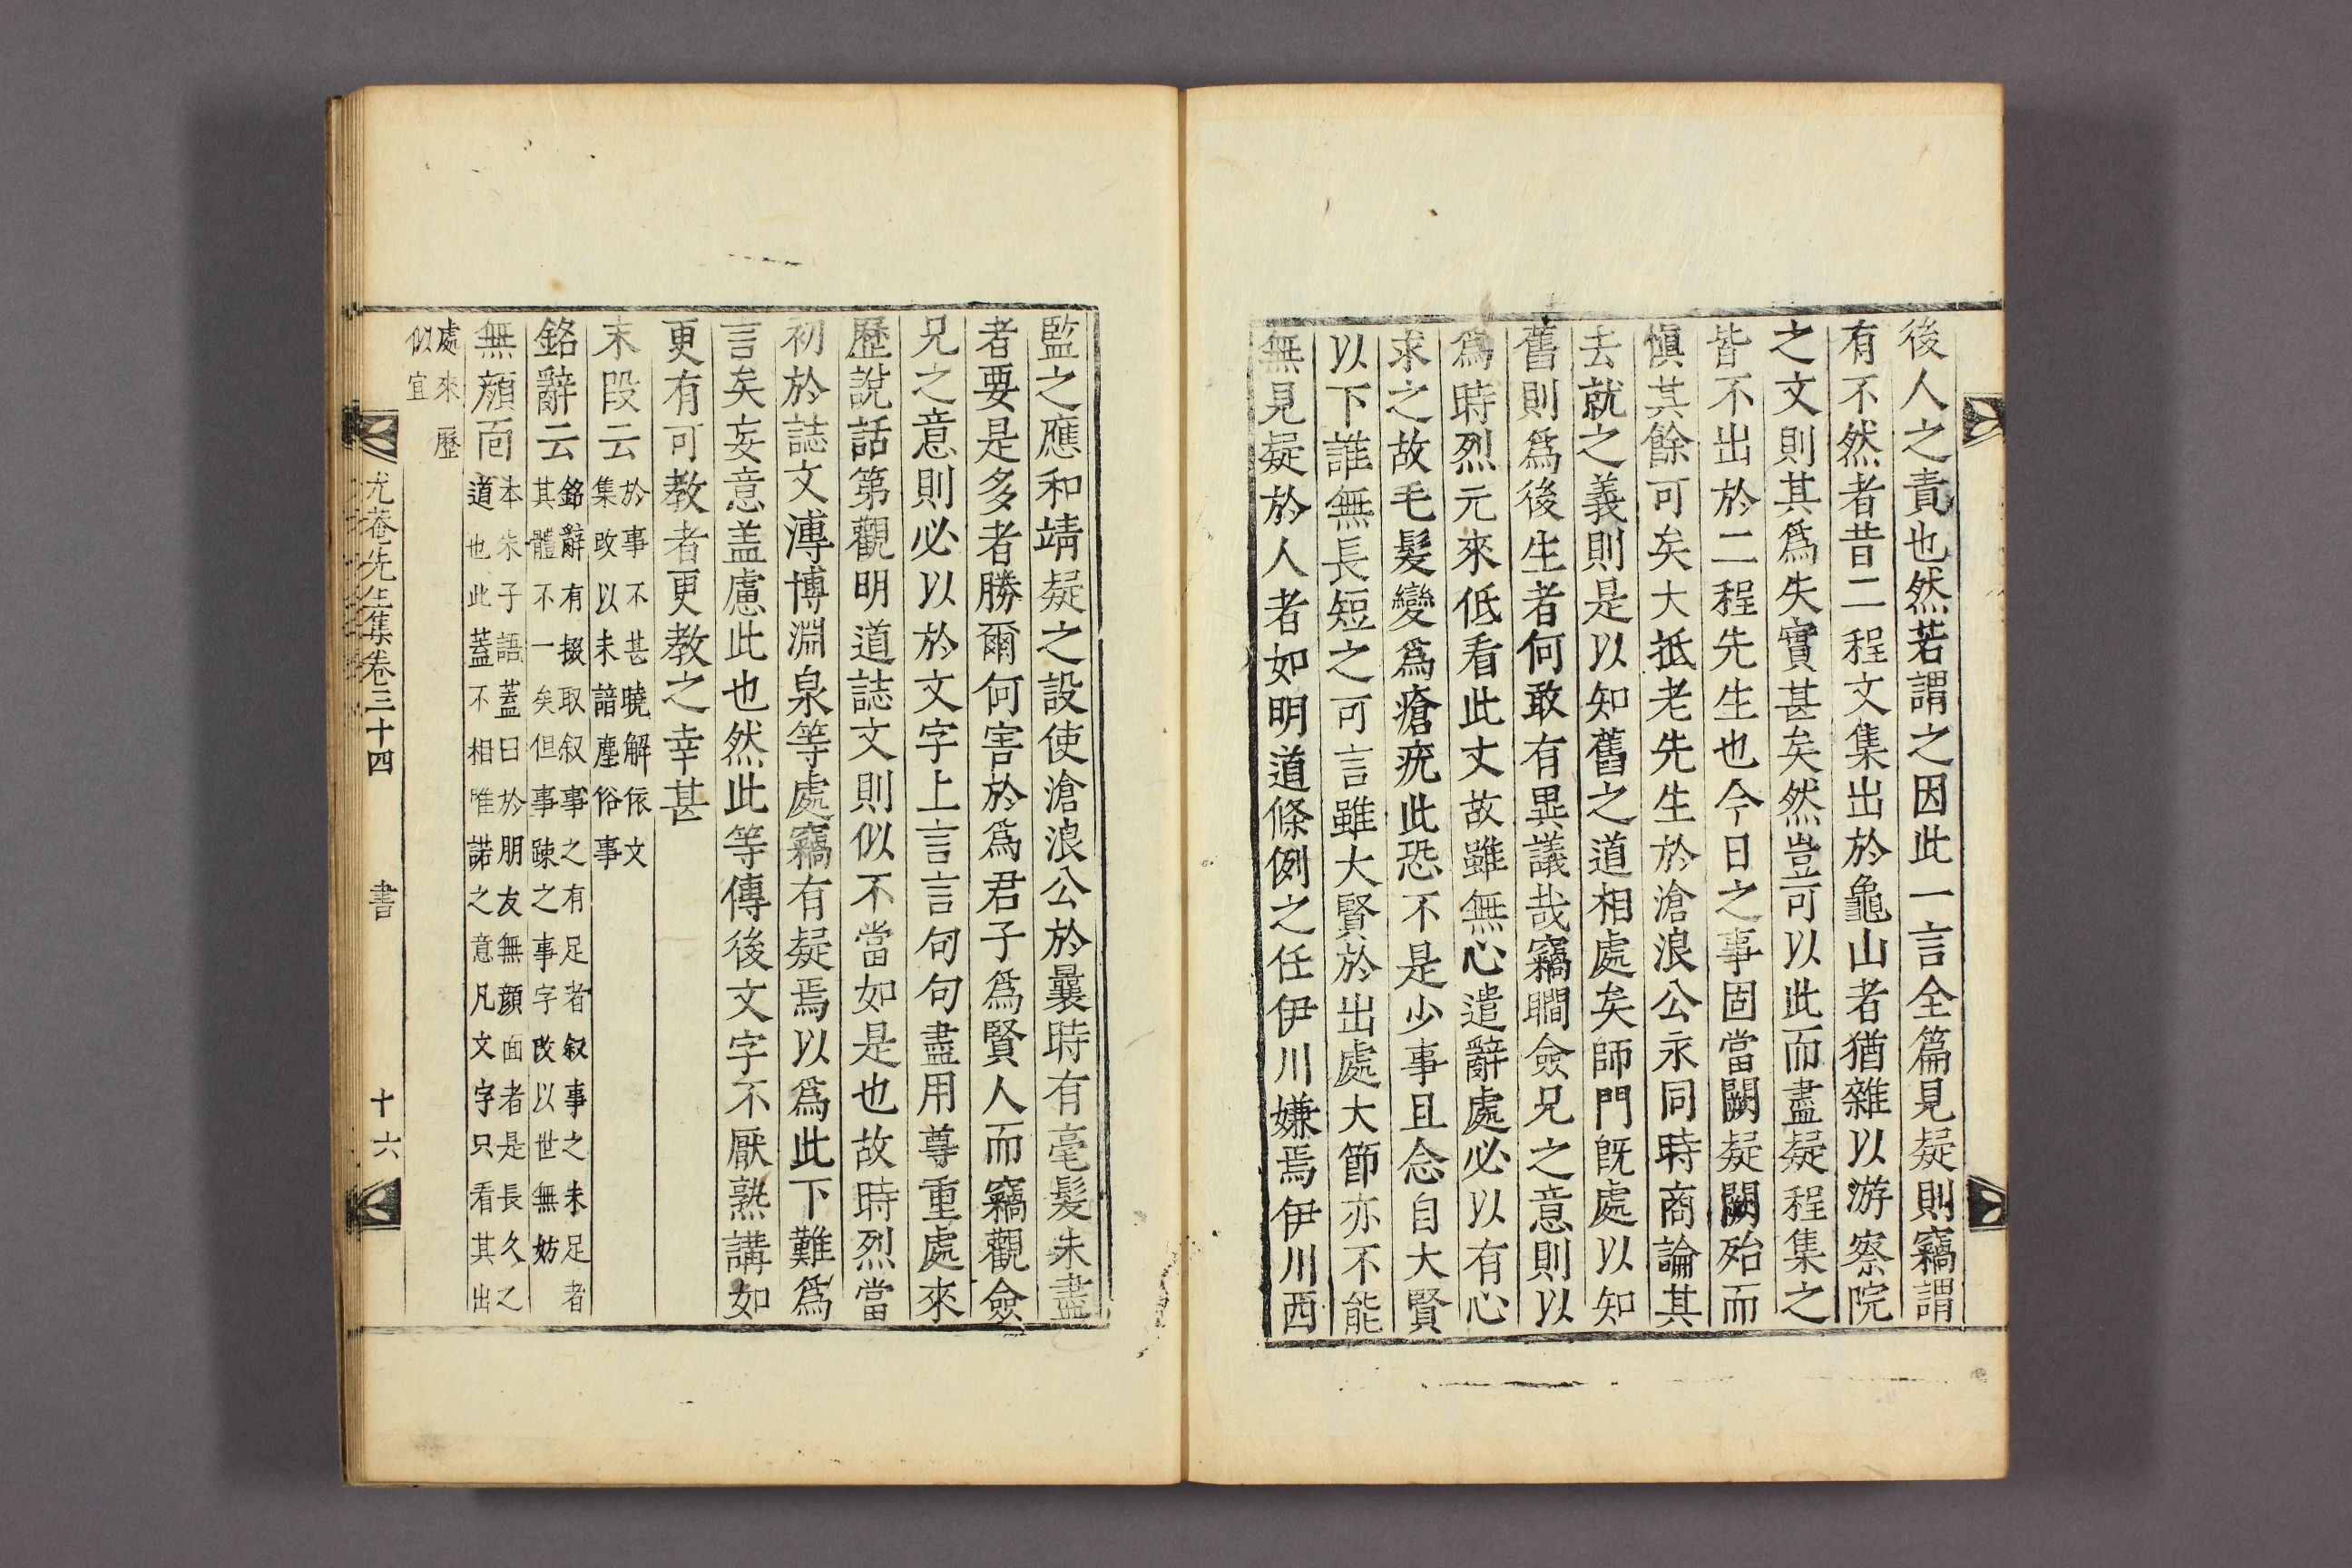 後人之責也然若謂之因此一言全篇見疑則竊謂
有不然者昔二程文集出於龜山者猶雜以游察院
之文則其爲失實甚矣然豈可以此而盡疑程集之
皆不出於二程先生也今日之事固當闕疑闕殆而
愼其餘可矣大抵老先生於滄浪公永同時商論其
去就之義則是以知舊之道相處矣師門旣處以知
舊則爲後生者何敢有異議哉竊瞷僉兄之意則以
爲時烈元來低看此丈故雖無心遣辭處必以有心
求之故毛髮變爲瘡疣此恐不是少事且念自大賢
以下誰無長短之可言雖大賢於出處大節亦不能
無見疑於人者如明道條例之任伊川嫌焉伊川西
監之應和靖疑之設使滄浪公於曩時有毫髮未盡
者要是多者勝爾何害於爲君子爲賢人而竊觀僉
兄之意則必以於文字上言言句句盡用尊重處來
歷說話第觀明道誌文則似不當如是也故時烈當
初於誌文溥博淵泉等處竊有疑焉以爲此下難爲
言矣妄意盖慮此也然此等傳後文字不厭熟講如
更有可教者更教之幸甚
末段云於事不甚曉解依文
集改以未諳塵俗事
銘辭云銘辭有掇取叙事之有足者叙事之未足者
其體不一矣但事踈之事字改以世無妨
無顔面本朱子語蓋曰於朋友無顔面者是長久之
道也此蓋不相唯諾之意凡文字只看其出
處來歷
似宜
尤菴先生集卷三十四 書 十六